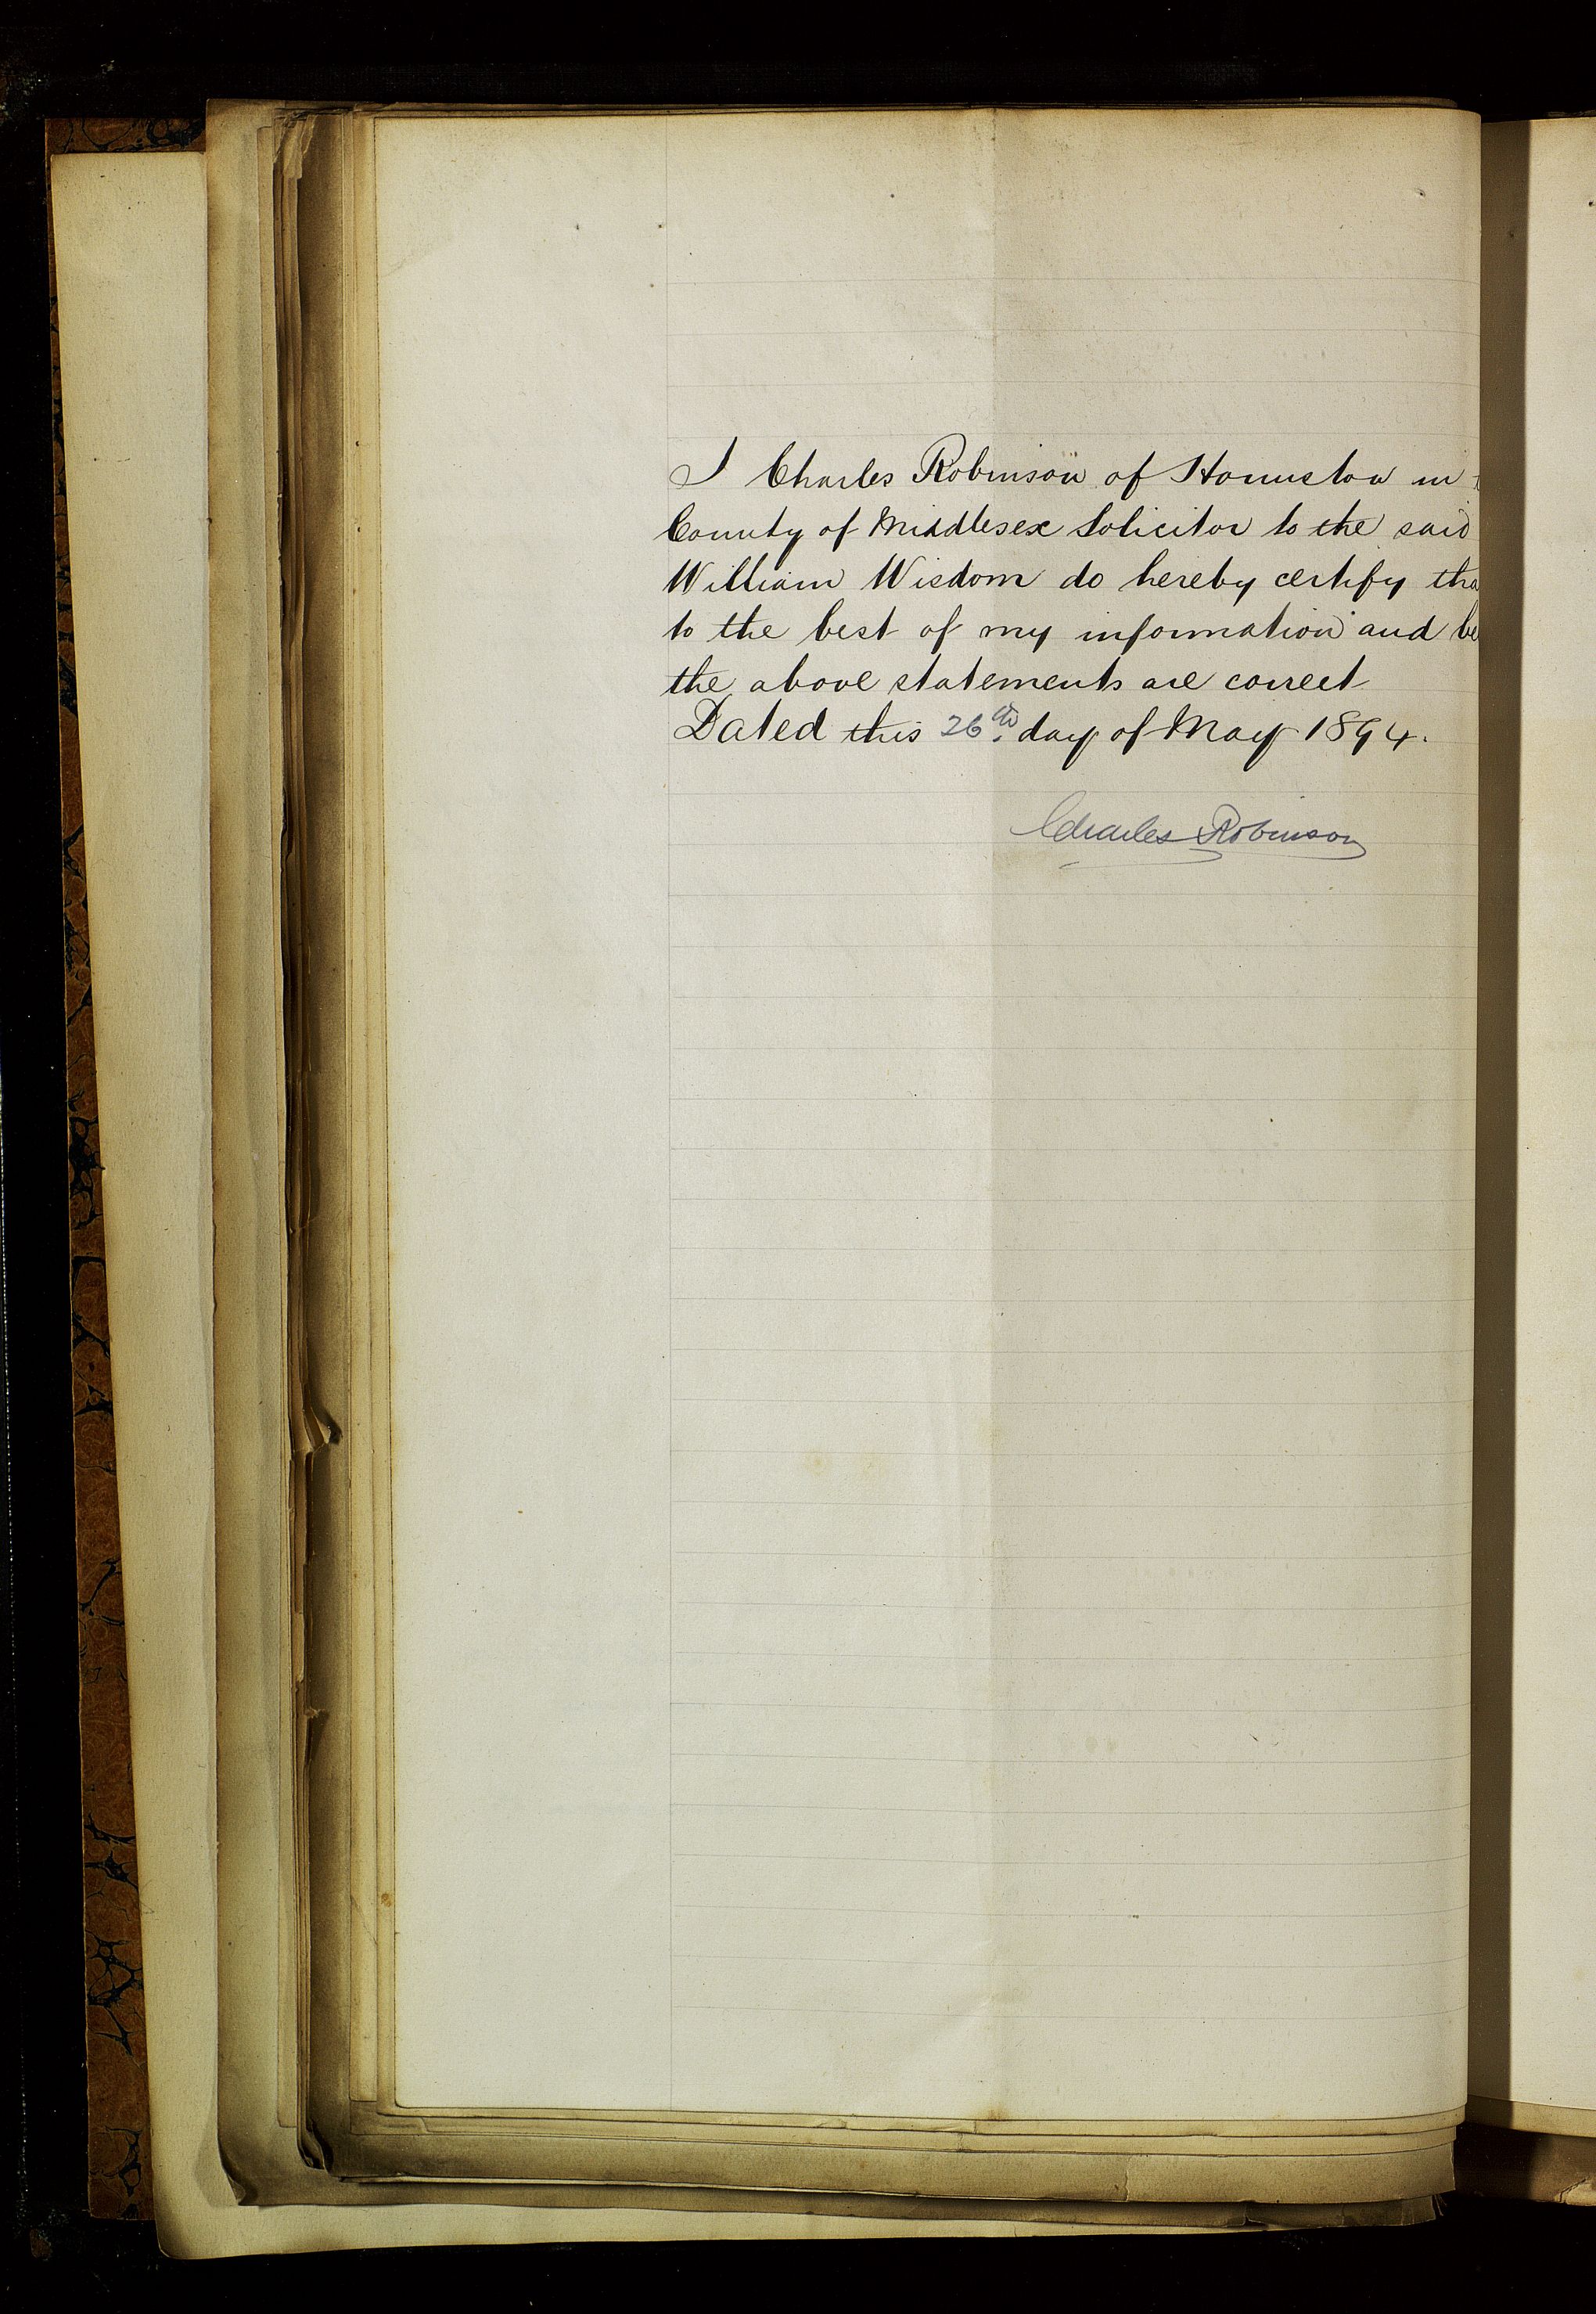 I Charles Robinson of Hounslow in
County of Middlesex Solicitor to the said
William Wisdom do hereby certify tha
to the best of my information and be
the above statements are correct
Dated this 26th day of May 1894.
Charles Robinson